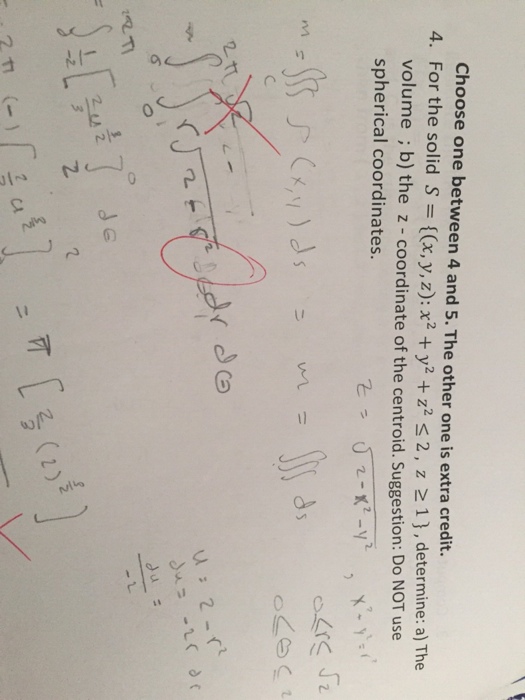 Choose one between 4 and 5. The other one is extra credit.
4. For the solid S = {(x, y, z): x² + y² + z² ≤ 2, z ≥ 1}, determine: a) The
volume ; b) the z - coordinate of the centroid. Suggestion: Do NOT use
spherical coordinates.
z = √2-x²-y² , x²-y²=1
m = ∭ ρ(x,y) ds = m = ∭ ds
0≤r≤√2
0≤θ≤2
∫∫ r√2-r² dr dθ
u = 2-r²
du = -2r dr
du/-2 =
= ∫ 1/-2 [2u^(3/2)/3] dθ
2π (-1/2)[2/3 u^(3/2)] = π [2/3 (2)^(3/2)]